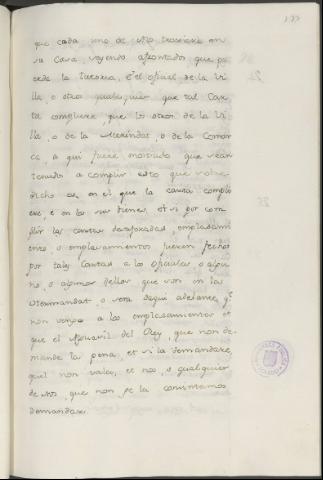 que cada uno de Nos troxiere en
su Casa, veyendo afrontados, que pa
rada la tursoria, è el oficial de la Vi
lla o otro qualesquier que tal Car
ta compliere, que los otros de la Vi
lla, o de la Merindat, o de la Comar
ca, a qui fuere mostrado que sean
tenudos a complir esto que sobre
dicho es en el que la carta compli
ere, è en los sus bienes, et si por com
plir las cartas desaforadas emplasami
ento, o emplasamientos fueren fechos
por tales Cartas a los oficiales o algu
no, o algunos dellos que son en las
Hermandat o sera daqui adelante, q.e
non vengan a los emplasamientos et
que el Aguacil del Rey, que non de
mande la pena, et si la demandare,
quel non vala, et nos, o qualquier
de Nos, que non se la consintamos
demandar.